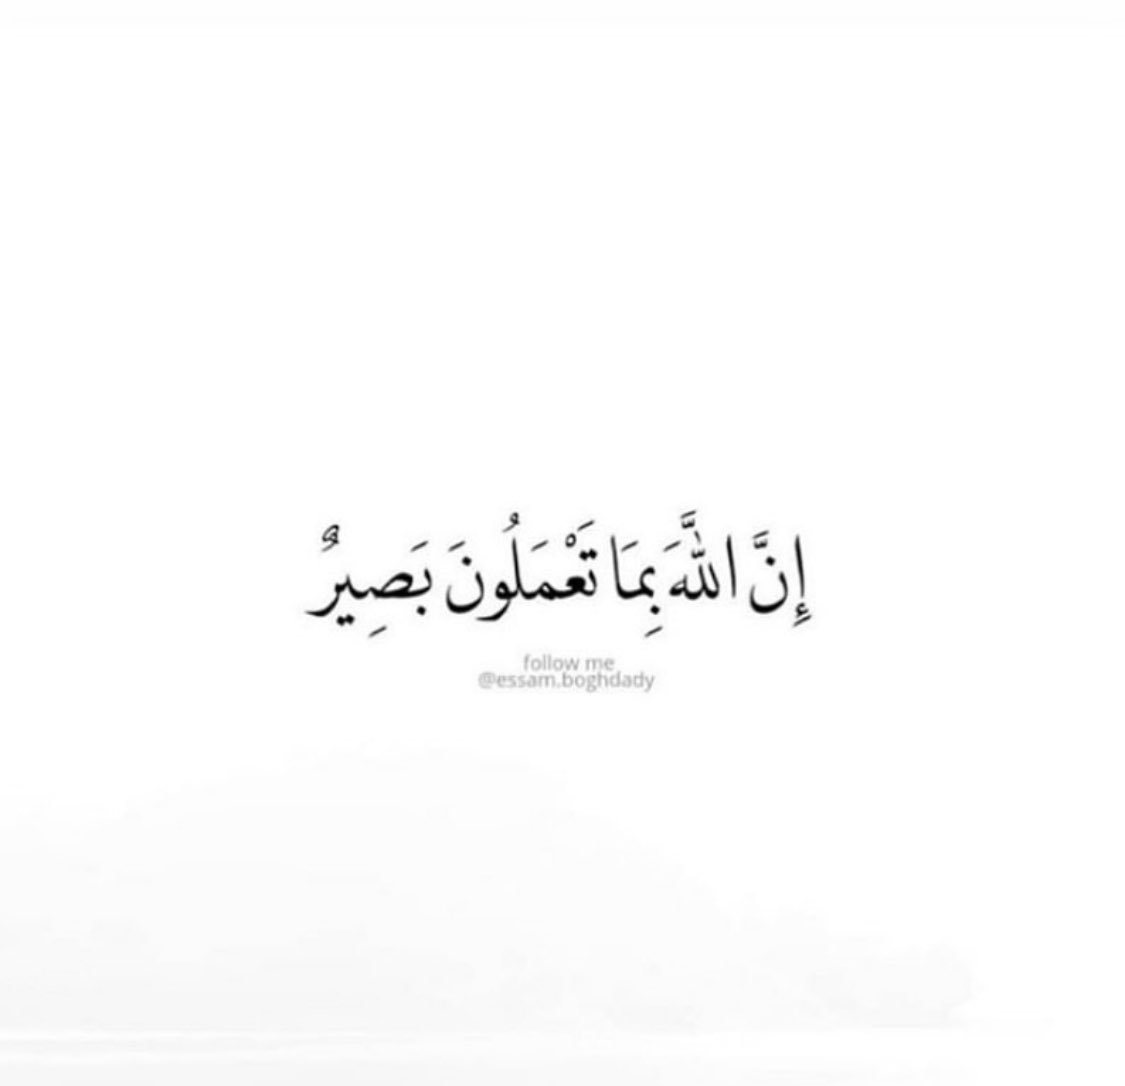 إِنَّ اللَّهَ بِمَا تَعْمَلُونَ بَصِيرٌ
follow me
@essam.boghdady